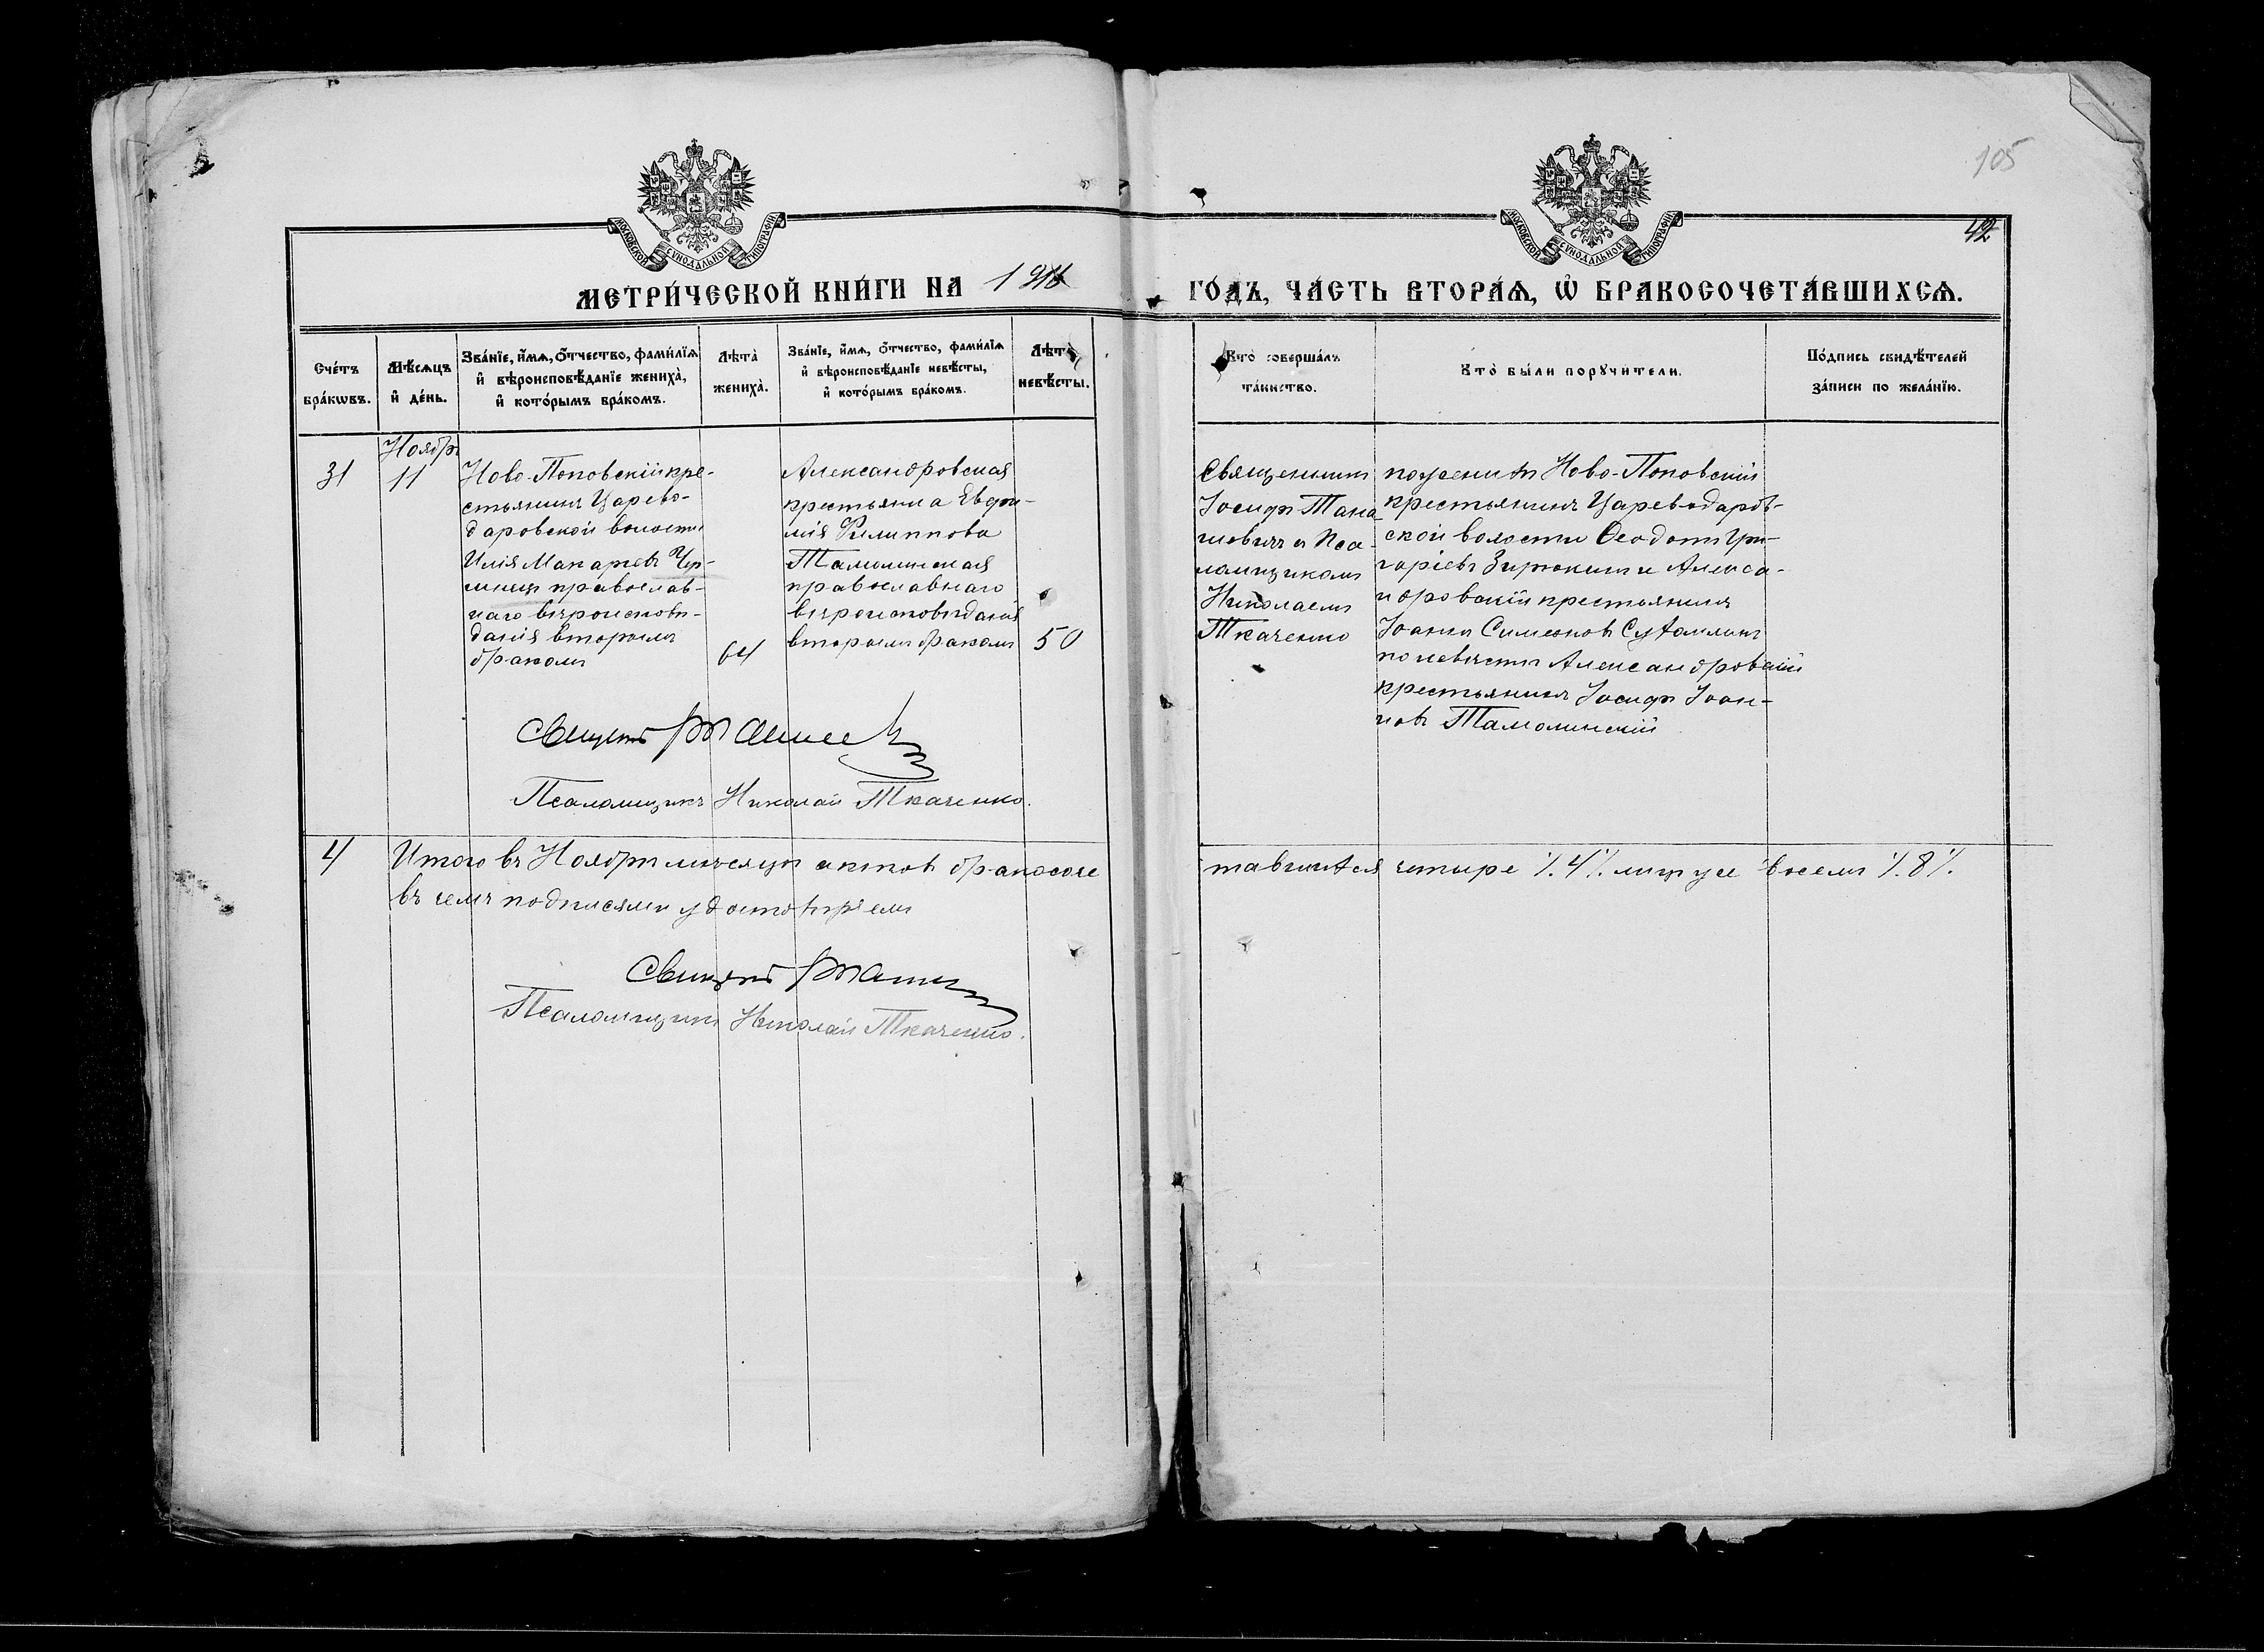 105
42
МОСКОВСКОЙ СѴНОДАЛЬНОЙ ТИПОГРАФІИ
МОСКОВСКОЙ СѴНОДАЛЬНОЙ ТИПОГРАФІИ
МЕТРИ́ЧЕСКОЙ КНИ́ГИ НА 1916 ГО́ДЪ, ЧА́СТЬ ВТОРА́Ѧ, Ѿ БРАКОСОЧЕТА́ВШИХСѦ.
Сче́тъ бра́кѡвъ.
Мѣ́сѧцъ и҆ де́нь.
Зва́нїе, и҆́мѧ, ѻ҆́тчество, фами́лїѧ
и҆ вѣроисповѣ́данїе жениха̀,
и҆ кото́рымъ бра́комъ.
Лѣта̀ жениха̀.
Зва́нїе, и҆́мѧ, ѻ҆́тчество, фами́лїѧ
и҆ вѣроисповѣ́данїе невѣ́сты,
и҆ кото́рымъ бра́комъ.
Лѣта̀ невѣ́сты.
Кто̀ соверша́лъ
та́инство.
Кто̀ бы́ли порꙋчи́тели.
По́дпись свидѣ́телей
за́писи по жела́нїю.
31
Ноябр
11
Ново-Поповскій кре-
стьянинъ Царево-
даровской волости
Илія Макаріевъ
православ-
наго вѣроисповѣ-
данія вторымъ
бракомъ
64
Александровская
крестьянка Евфи-
мія Филиппова
Тамолинская
православнаго
вѣроисповѣданія
вторымъ бракомъ
50
Священникъ
Іосифъ Тана
шовичъ и Пса-
ломщикомъ
Николаемъ
Ткаченко
по женихѣ Ново-Поповскій
крестьянинъ Цареводаров-
ской волости Ѳеодотъ Гри-
горіевъ Зирюкинъ и Алекса-
ндровскій крестьянинъ
Іоаннъ Симеоновъ
по невѣстѣ Александровскій
крестьянинъ Іосифъ Іоан-
новъ Тамолинскій
Псаломщикъ Николай Ткаченко.
4
Итого въ Ноябрѣ мѣсяцѣ актовъ бракосоче
тавшихся четыре ./. 4 ./. лицъ же восемь ./. 8 ./.
въ чемъ подписями удостовѣряемъ
Псаломщикъ Николай Ткаченко.